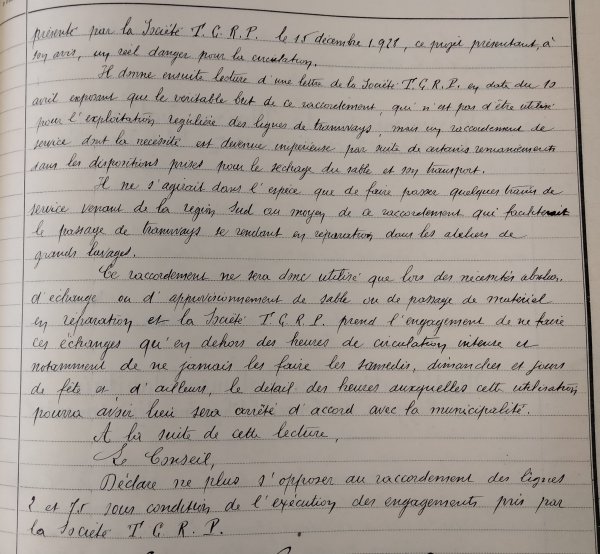 présenté par la Société T.C.R.P. le 15 décembre 1.921, ce projet présentant, à
son avis, un réel danger pour la circulation.
Il donne ensuite lecture d'une lettre de la Société T.C.R.P. en date du 10
avril exposant que le véritable but de ce raccordement, qui n'est pas d'être utilisé
pour l'exploitation régulière des lignes de tramways, mais un raccordement de
service dont la nécessité est devenue impérieuse par suite de certains remaniements
dans les dispositions prises pour le séchage du sable et son transport.
Il ne s'agirait dans l'espèce que de faire passer quelques trains de
service venant de la région Sud au moyen de ce raccordement qui faciliterait
le passage de tramways se rendant en réparation dans les ateliers de
grands lavages.
Ce raccordement ne sera donc utilisé que lors des nécessités absolues
d'échange ou d'approvisionnement de sable ou de passage de matériel
en réparation et la Société T.C.R.P. prend l'engagement de ne faire
ces échanges qu'en dehors des heures de circulation intense et
notamment de ne jamais les faire les samedis, dimanches et jours
de fête et d'ailleurs, le détail des heures auxquelles cette utilisation
pourra avoir lieu sera arrêté d'accord avec la municipalité.
A la suite de cette lecture,
Le Conseil,
Déclare ne plus s'opposer au raccordement des lignes
2 et 75 sous condition de l'exécution des engagements pris par
la Société T.C.R.P.